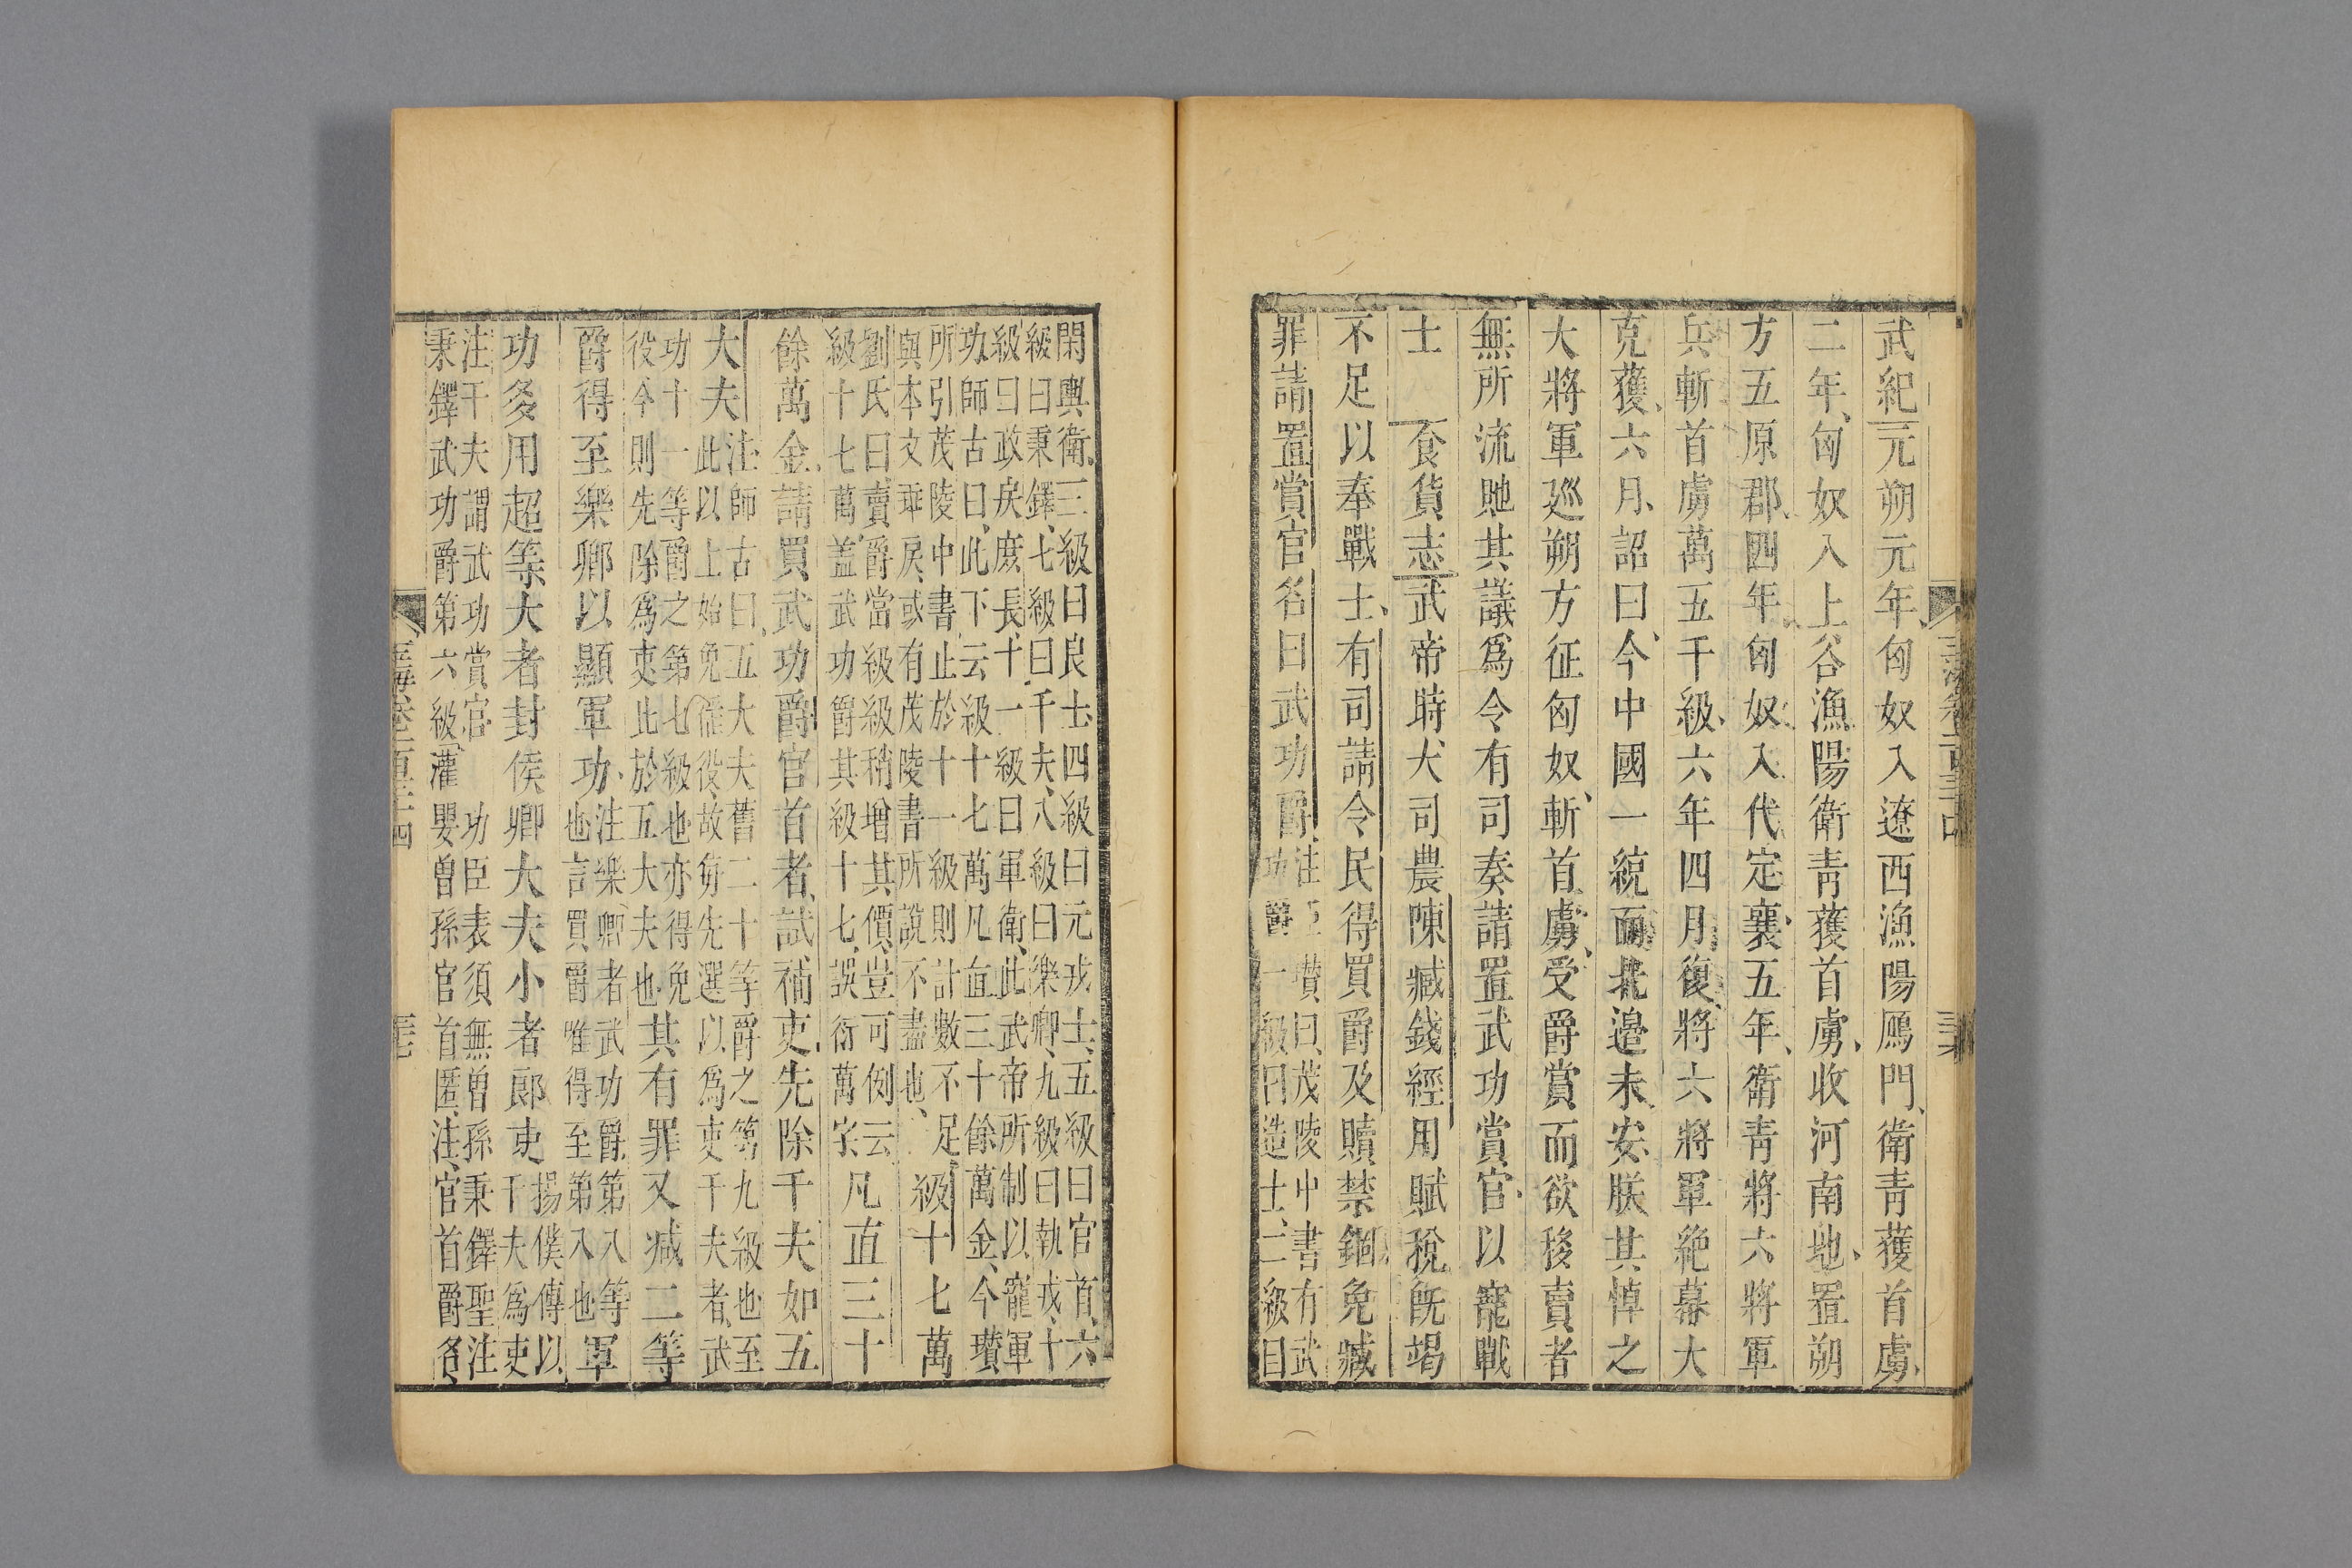 武紀元朔元年匈奴入遼西漁陽鴈門衛青獲首虜
二年匈奴入上谷漁陽衛青獲首虜收河南地置朔
方五原郡四年匈奴入代定襄五年衛青將六將軍
兵斬首虜萬五千級六年四月復將六將軍絶幕大
克獲六月詔曰今中國一統而北邊未安朕其悼之
大將軍廵朔方征匈奴斬首虜受爵賞而欲移賣者
無所流貤其議爲令有司奏請置武功賞官以寵戰
士　食貨志武帝時大司農陳臧錢經用賦稅旣竭
不足以奉戰士有司請令民得買爵及贖禁錮免臧
罪請置賞官名曰武功爵
注 瓚曰茂陵中書有武
功爵一級曰造士二級曰
閑輿衛三級曰良士四級曰元戎士五級曰官首六
級曰秉鐸七級曰千夫八級曰樂卿九級曰執戎十
級曰政戾庶長十一級曰軍衛此武帝所制以寵軍
功師古曰此下云級十七萬凡直三十餘萬金今瓚
所引茂陵中書止於十一級則計數不足
與本文乖戾或有茂陵書所說不盡也
級十七萬
劉氏曰賣爵當級級稍增其價豈可例云
級十七萬蓋武功爵其級十七誤衍萬字
凡直三十
餘萬金請買武功爵官首者試補吏先除千夫如五
大夫
注師古曰五大夫舊二十等爵之第九級也至
此以上始免徭役故每先選以爲吏千夫者武
功十一等爵之第七級也亦得免
役今則先除爲吏比於五大夫也
其有罪又减二等
爵得至樂卿以顯軍功
注樂卿者武功爵第八等
也言買爵唯得至第八也
軍
功多用超等大者封侯卿大夫小者郎吏
楊僕傳以
千夫爲吏
注千夫謂武功賞官　功臣表須無曾孫秉鐸聖注
秉鐸武功爵第六級灌嬰曾孫官首匿注官首爵名